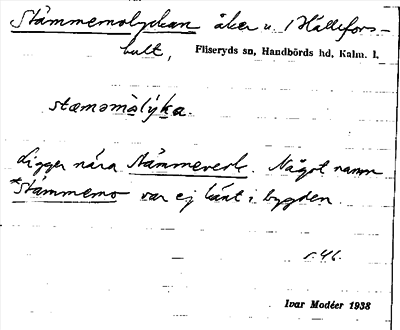 Stämmemolyckan åker u. 1 Hällefors-
hult, Fliseryds sn, Handbörds hd, Kalm. l.
stæməmòlýka.
Ligger nära Stämmeverk. Något namn
*Stämmemo var ej känt i bygden.
r. 46.
Ivar Modéer 1938